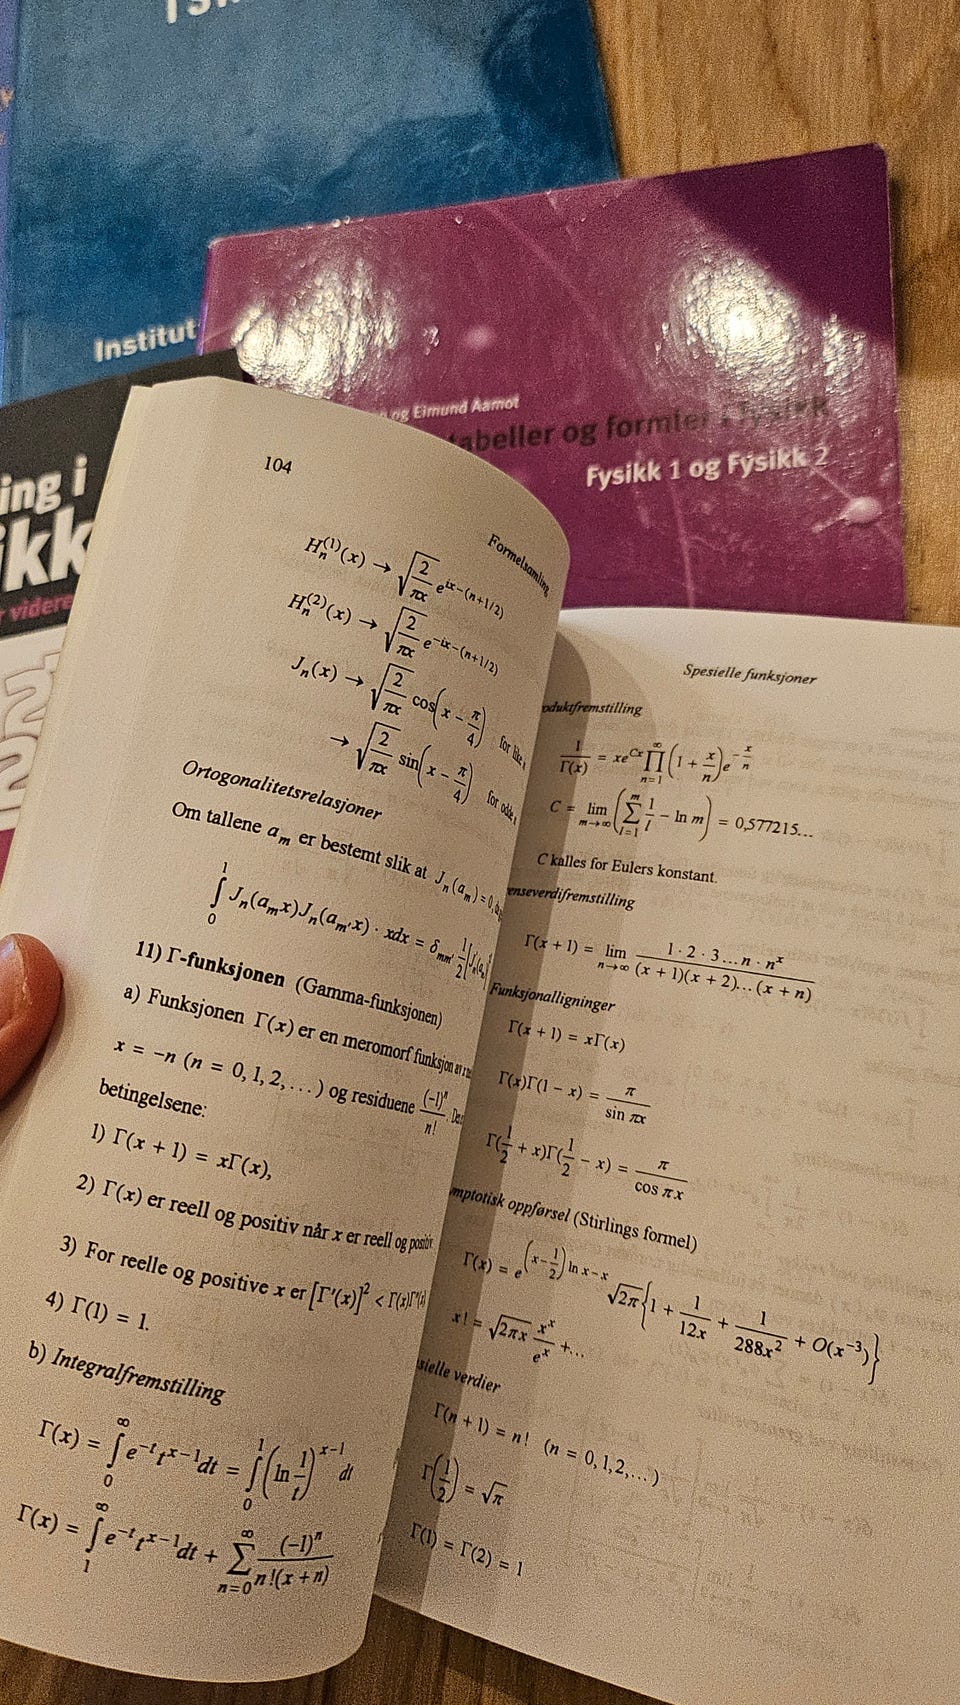 Institut
og Eimund Aamot
tabeller og formler i fysikk
Fysikk 1 og Fysikk 2
ing i
ikk
videre
104
Formelsamling
Hₙ⁽¹⁾(x) → √(2/πx) e^(ix−(n+1/2))
Hₙ⁽²⁾(x) → √(2/πx) e^(−ix−(n+1/2))
Jₙ(x) → √(2/πx) cos(x − π/4) for like
→ √(2/πx) sin(x − π/4) for odde
Ortogonalitetsrelasjoner
Om tallene aₘ er bestemt slik at Jₙ(aₘ) = 0,
∫₀¹ Jₙ(aₘx)Jₙ(aₘ′x) · xdx = δₘₘ′ 1/2
11) Γ-funksjonen (Gamma-funksjonen)
a) Funksjonen Γ(x) er en meromorf funksjon av
x = −n (n = 0, 1, 2, . . . ) og residuene (−1)ⁿ/n!
betingelsene:
1) Γ(x + 1) = xΓ(x),
2) Γ(x) er reell og positiv når x er reell og positiv.
3) For reelle og positive x er [Γ′(x)]² < Γ(x)Γ″(x)
4) Γ(1) = 1.
b) Integralfremstilling
Γ(x) = ∫₀^∞ e^(−t) t^(x−1) dt = ∫₀¹ (ln 1/t)^(x−1) dt
Γ(x) = ∫₁^∞ e^(−t) t^(x−1) dt + ∑ₙ₌₀^∞ (−1)ⁿ/n!(x + n)
Spesielle funksjoner
oduktfremstilling
1/Γ(x) = xe^(Cx) ∏ₙ₌₁^∞ (1 + x/n) e^(−x/n)
C = lim_(m→∞) (∑_(l=1)^m 1/l − ln m) = 0,577215...
C kalles for Eulers konstant.
enseverdifremstilling
Γ(x + 1) = lim_(n→∞) 1 · 2 · 3 ... n · nˣ/(x + 1)(x + 2)... (x + n)
Funksjonalligninger
Γ(x + 1) = xΓ(x)
Γ(x)Γ(1 − x) = π/sin πx
Γ(1/2 + x)Γ(1/2 − x) = π/cos πx
mptotisk oppførsel (Stirlings formel)
Γ(x) = e^((x−1/2) ln x−x) √2π {1 + 1/12x + 1/288x² + O(x⁻³)}
x! = √2πx xˣ/eˣ +...
sielle verdier
Γ(n + 1) = n! (n = 0, 1,2,... )
Γ(1/2) = √π
Γ(1) = Γ(2) = 1